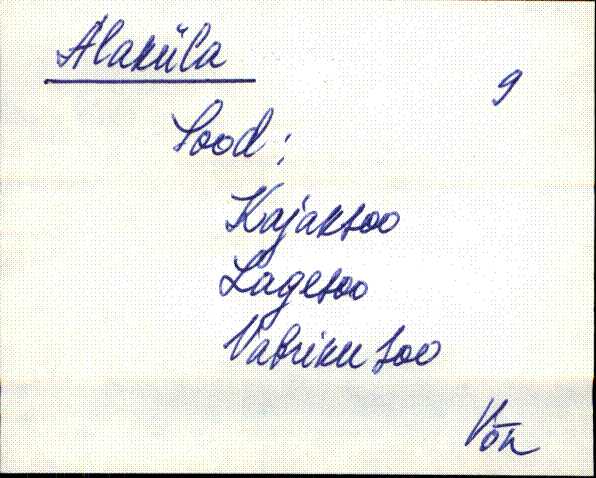 Alaküla
9
Sood:
Kajaksoo
Lagesoo
Vabriku soo
Võn